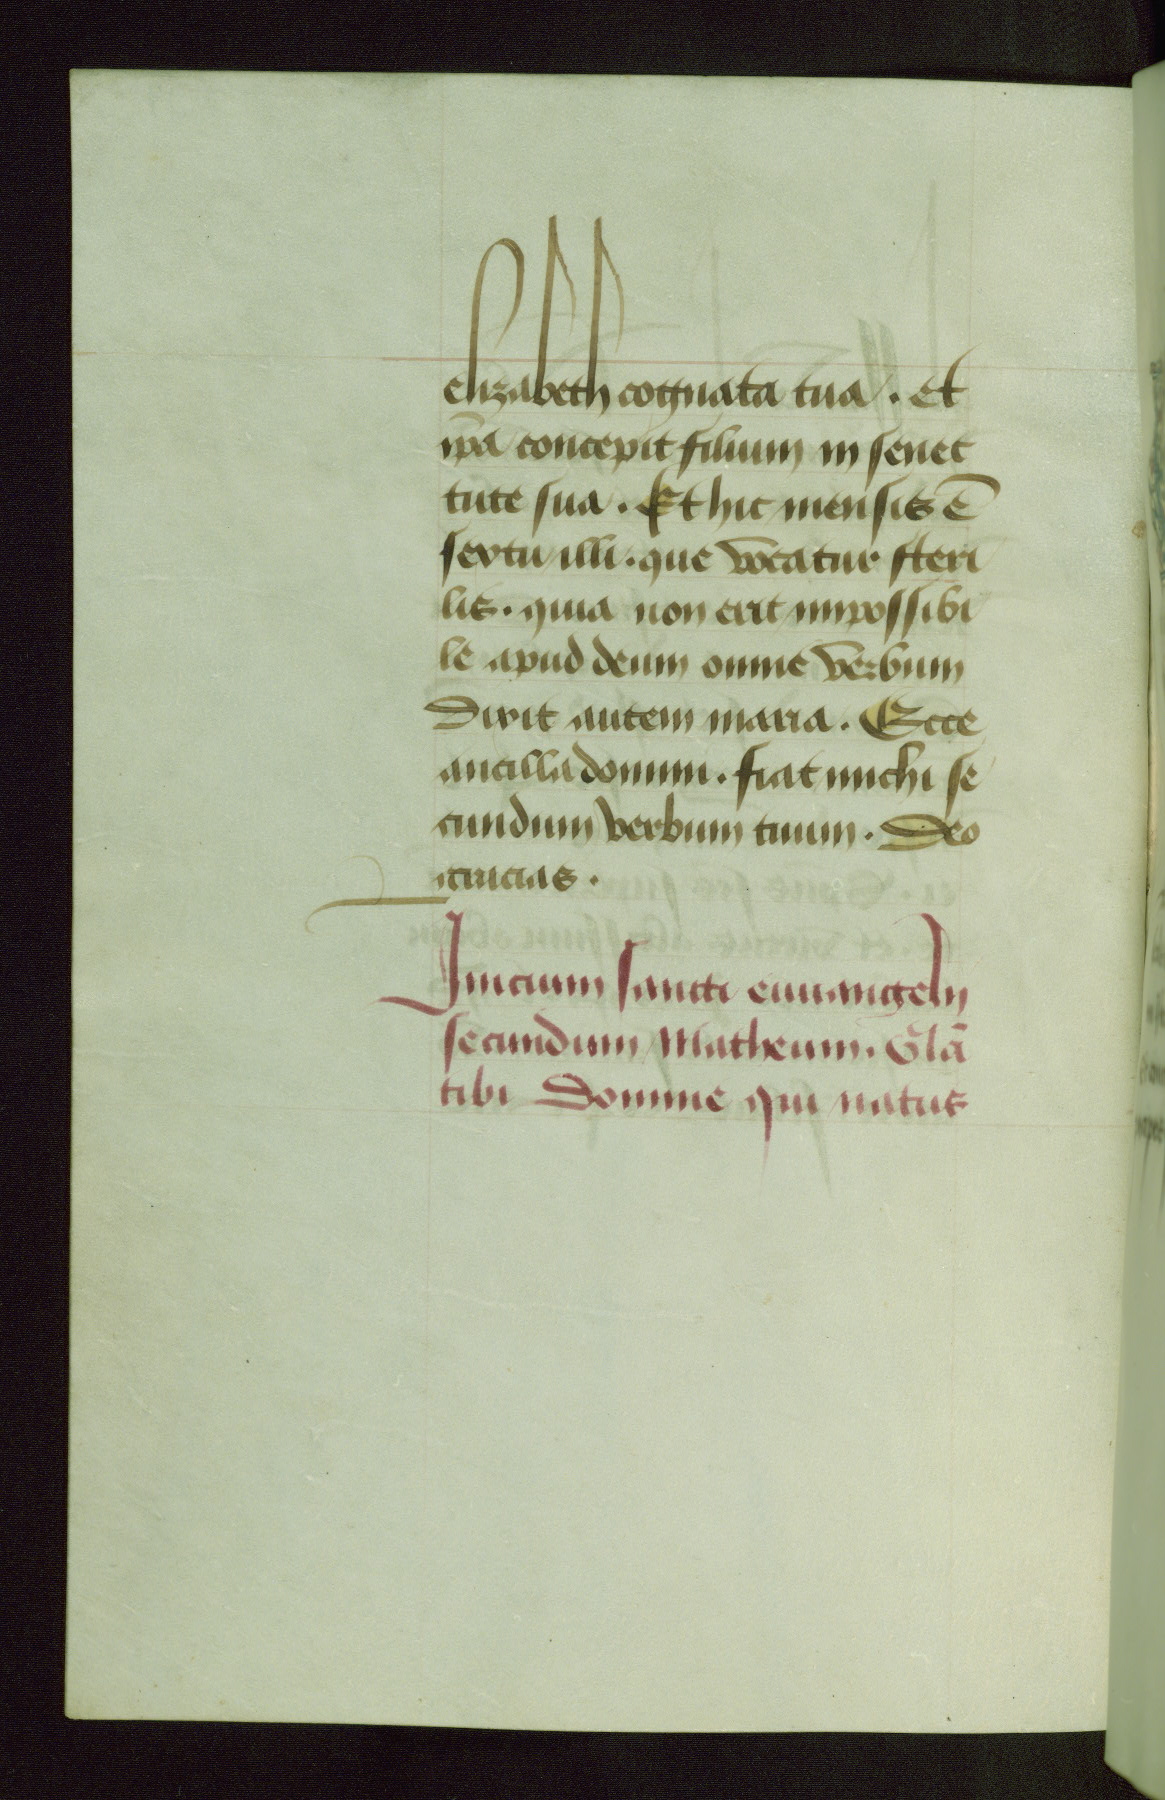 elizabeth cognata tua. Et
ip̄a concepit filium in senec
tute sua. Et hic mensis ē
sextu illi. que vocatur steri
lis. quia non erit impossibi
le apud deum omne verbum
Dixit autem maria. Ecce
ancilla domini. fiat michi se
cundum verbum tuum. Deo
gracias.
Inicium sancti euuangelij
secundum Matheum. Gl̄ā
tibi Domine qui natus